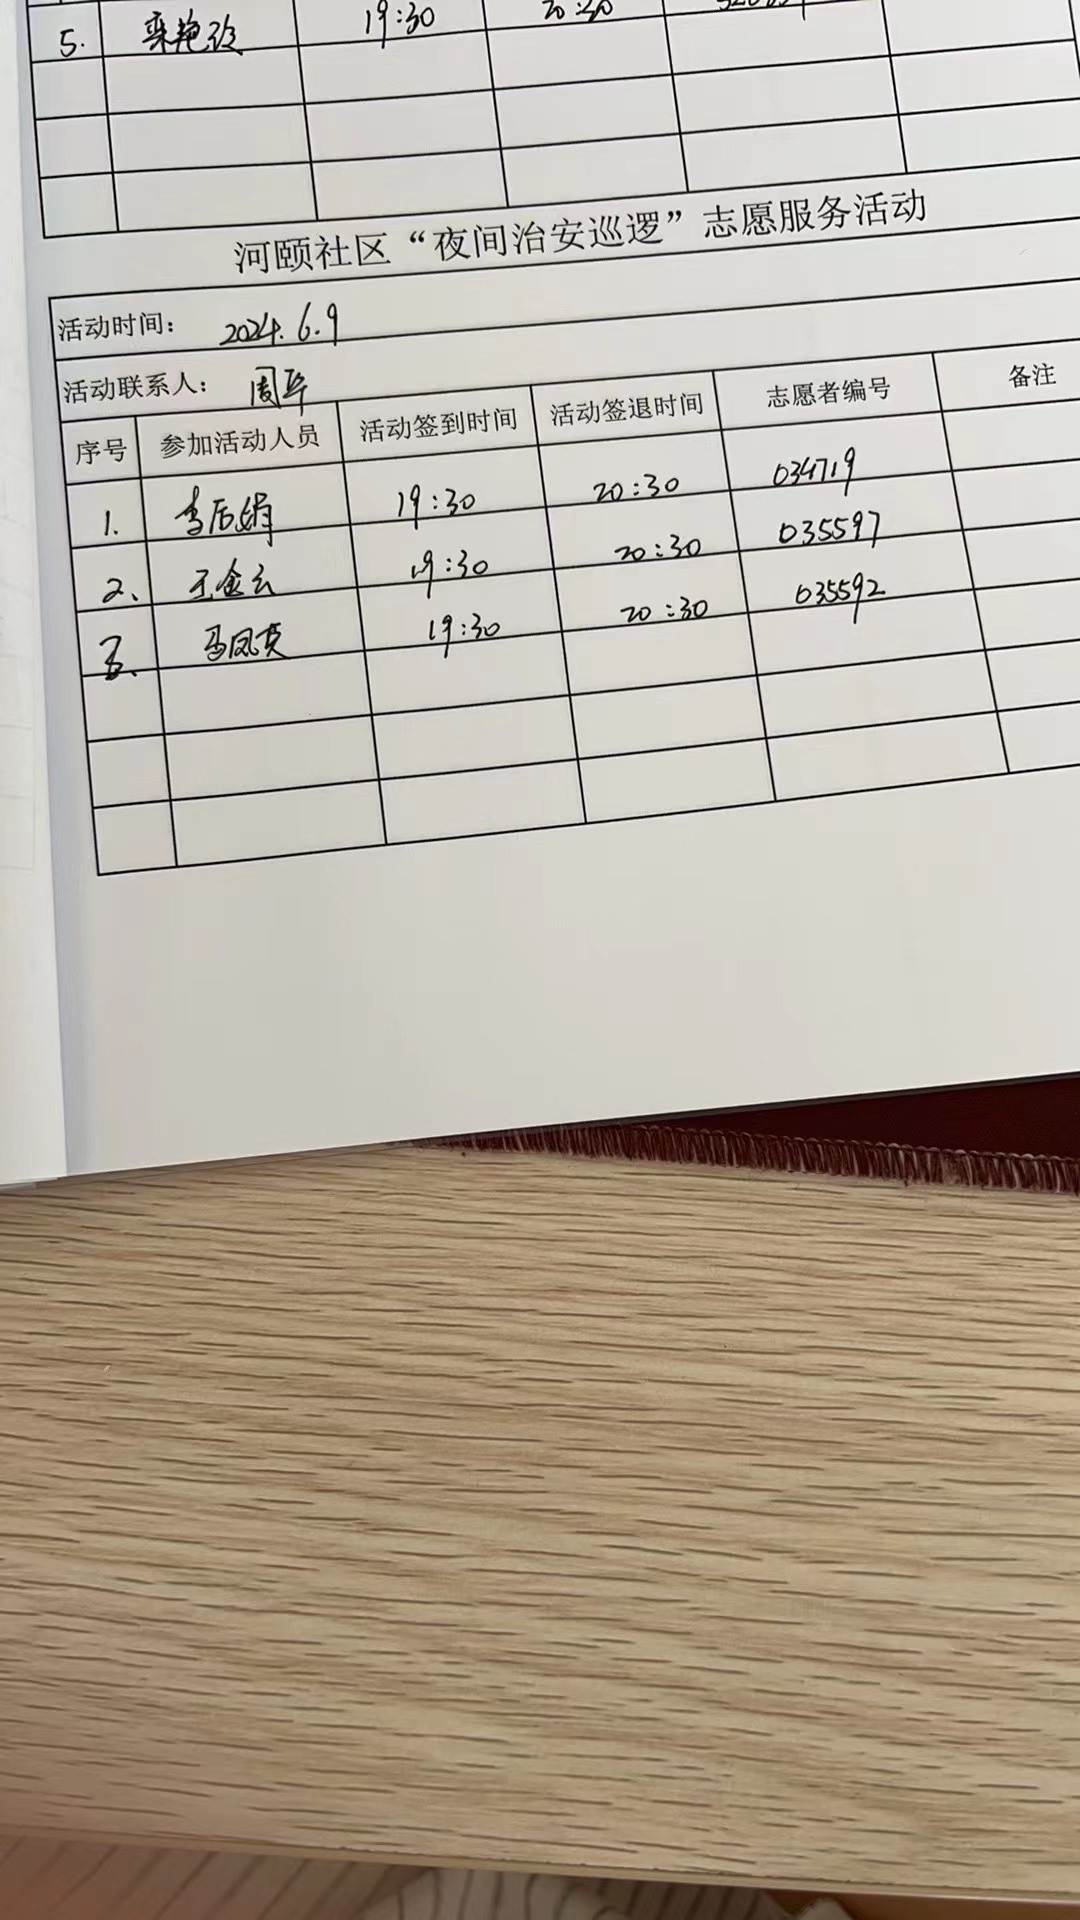 5. 栾艳玲 19:30 20:30
河颐社区“夜间治安巡逻”志愿服务活动
活动时间： 2024.6.9
活动联系人： 周华
序号 参加活动人员 活动签到时间 活动签退时间 志愿者编号 备注
1. 李后娟 19:30 20:30 034719
2、 王金云 19:30 20:30 035597
3、 马凤英 19:30 20:30 035592